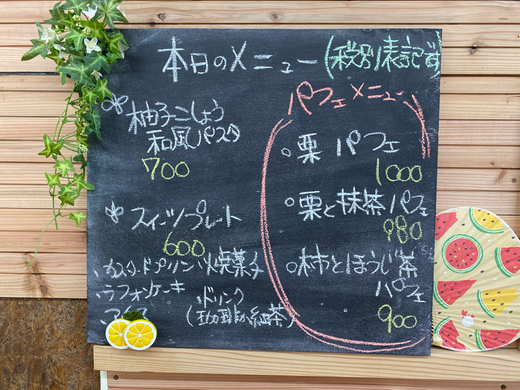 本日のメニュー(税別表記です)
柚子こしょう
和風パスタ
700
スイーツプレート
600
カスタードプリン
焼菓子
シフォンケーキ
アイス
ドリンク
紅茶)
パフェメニュー
。栗 パフェ
1000
。栗と抹茶パフェ
980
。柿とほうじ茶
パフェ
900